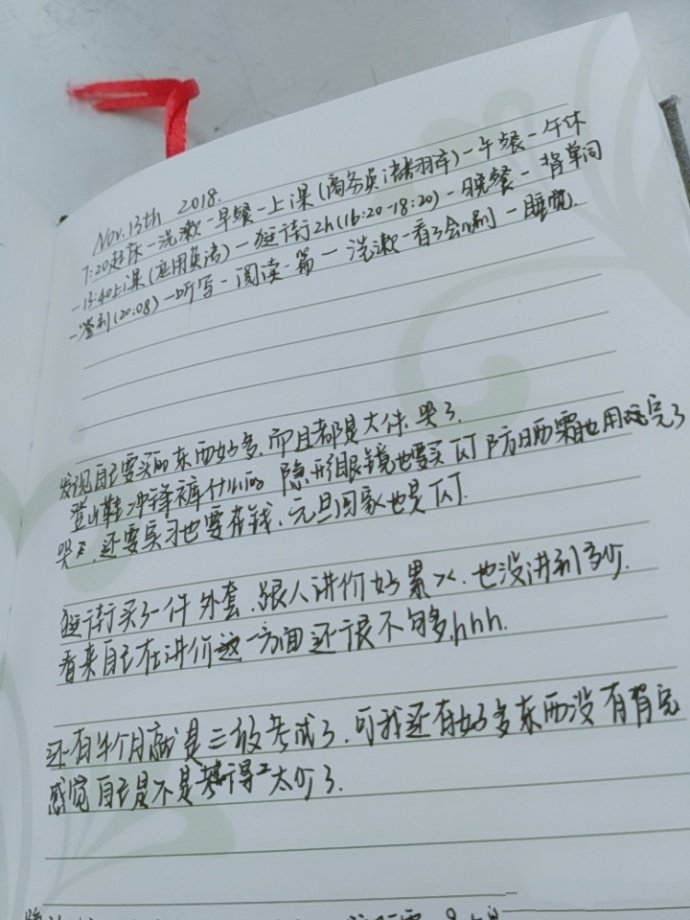 Nov.13th 2018.
7:20起床-洗漱-早餐-上课(商务英语翻译)-午餐-午休
-13:40上课(应用英语)-逛街2h(16:20-18:20)-晚餐-背单词
-签到(20:08)-听写-阅读一篇-洗漱-看会剧-睡觉.
发现自己要买的东西好多,而且都是大件.哭了.
登山鞋冲锋裤什么的 隐形眼镜也要买 防晒霜也用完了
哭,还要实习也要存钱,元旦回家也是
逛街买了一件外套,跟人讲价好累><,也没讲到多少.
看来自己在讲价这一方面还很不够多,hhh.
还有半个月就是三级考试了,可我还有好多东西没有背完
感觉自己是不是背得太少了.